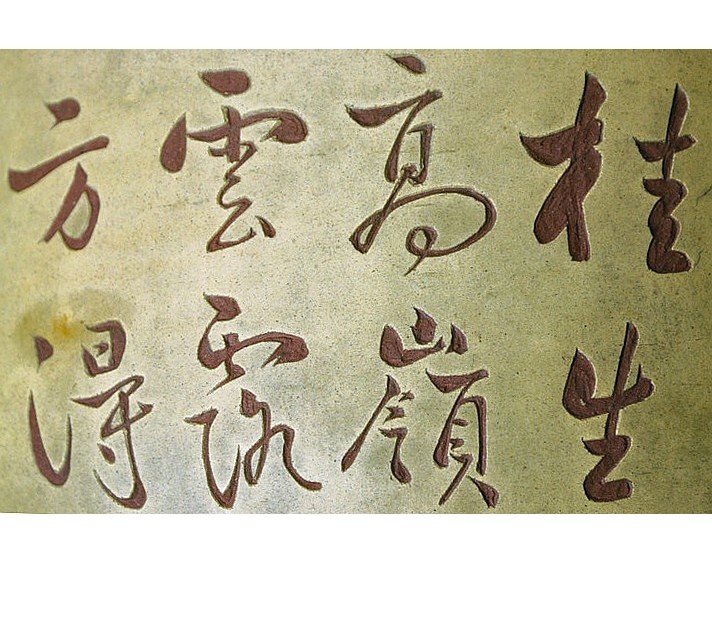 桂生
高嶺
雲露
方得